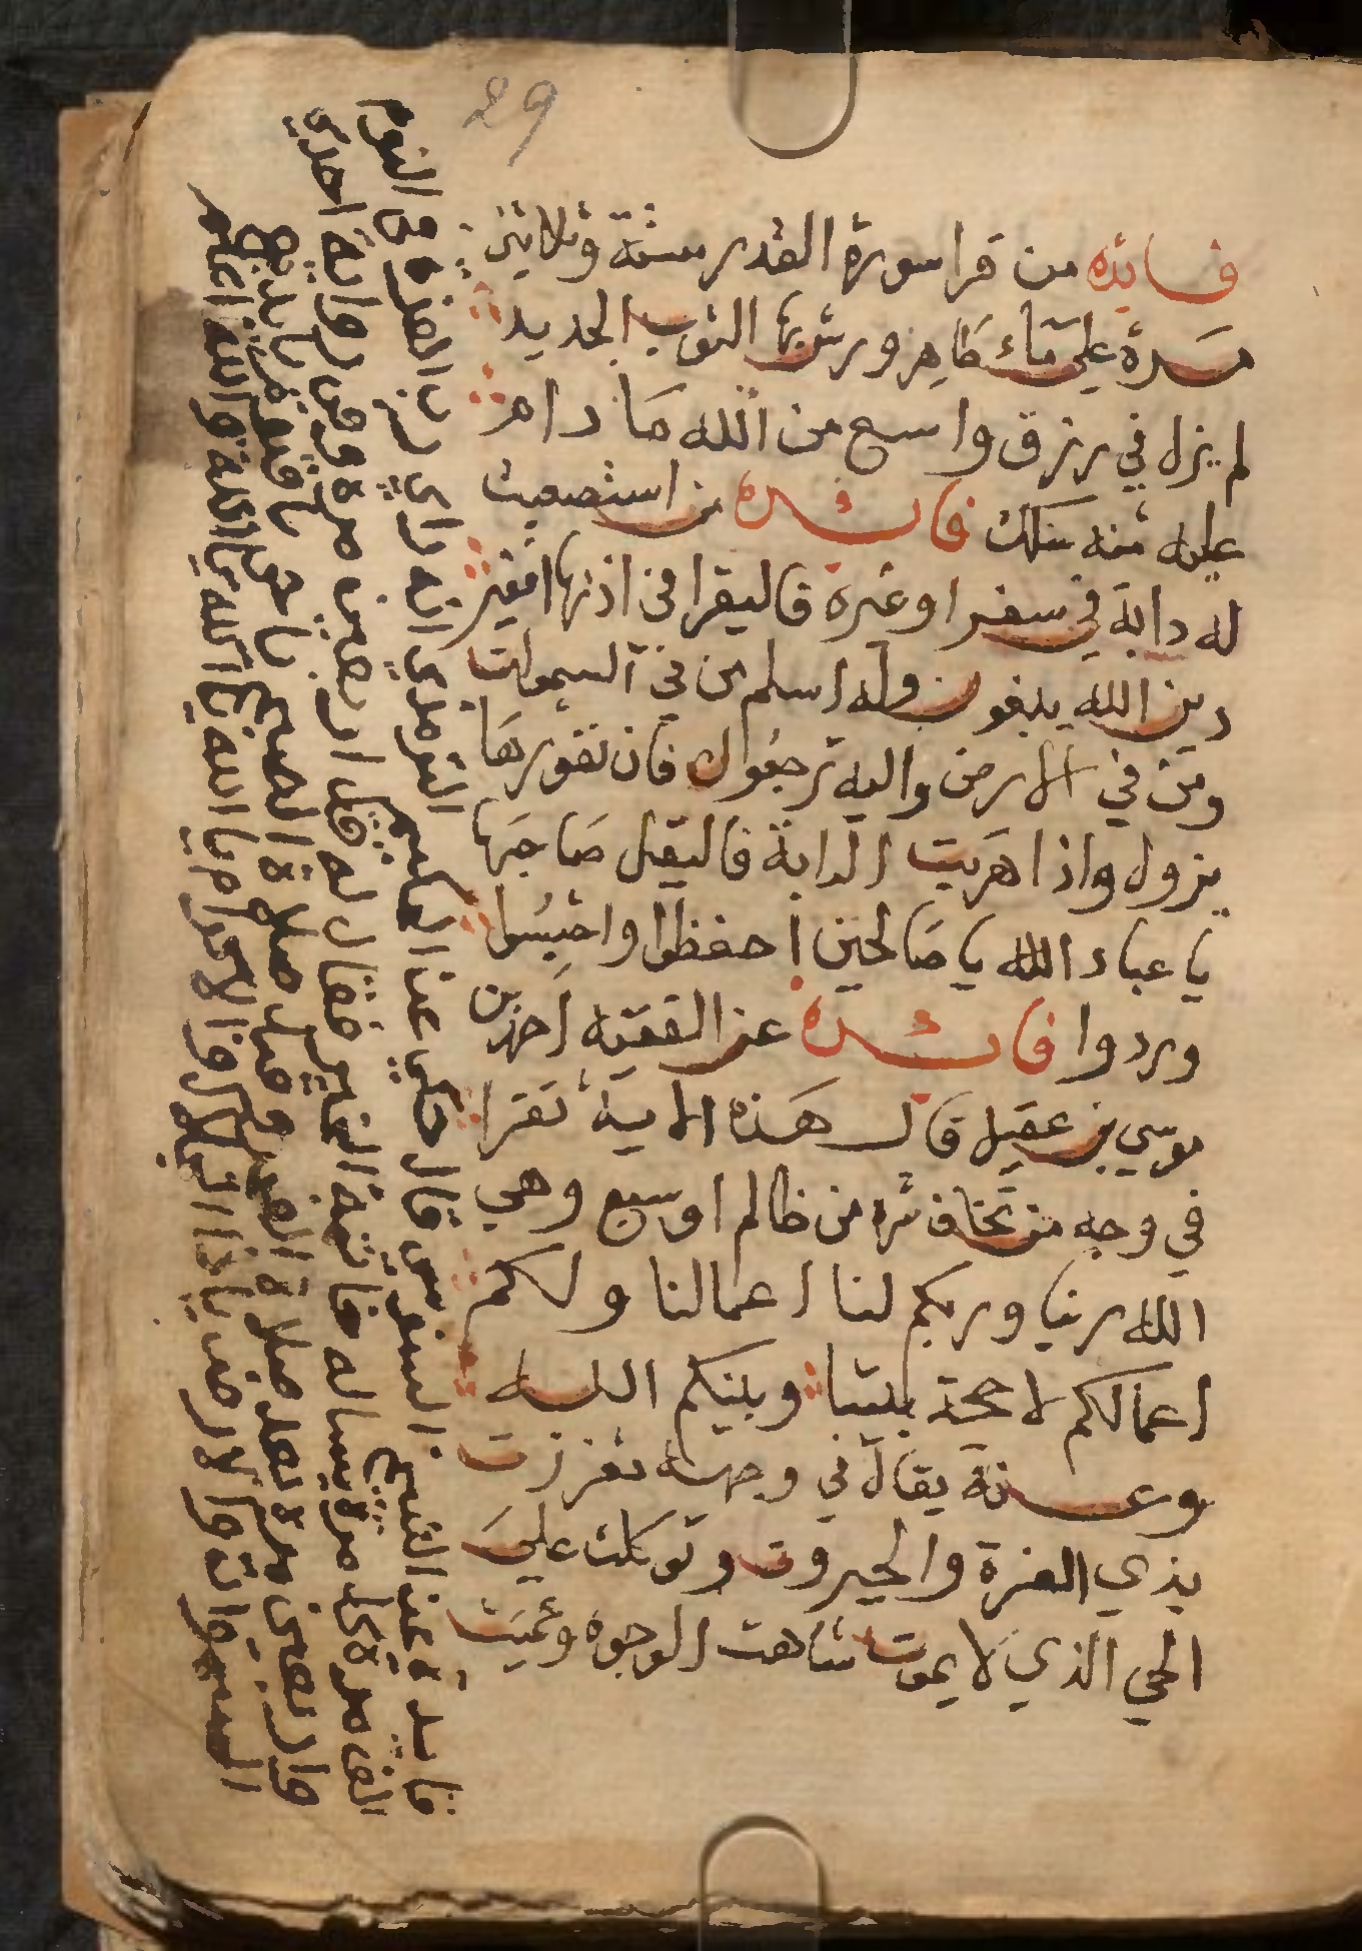 29
فايده من قرا سورة القدر ستة وثلاثين
مرة على ماء طاهر ورش بها الثوب الجديد
لم يزل في رزق واسع من الله ما دام
عليه منه سلك فائده من استصعبت
له دابة في سفر او غيره فاليقرا في اذنها افغير
دين الله يبغون وله اسلم من في السموات
ومن في الارض واليه ترجعون فان نفورها
يزول واذا هربت الدابة فاليقل صاحبها
يا عباد الله يا صالحين احفظوا واحبسوا
وردوا فائده عن الفقيه احمد بن
موسي بن عقيل قال هذه الاية تقرا
في وجه من تخاف شره من ظالم او سبع وهي
الله ربنا وربكم لنا اعمالنا ولكم
اعمالكم لا حجة بيننا وبينكم الله
وعنه يقال في وجهه تعززت
بذي العزة والجبروت وتوكلت على
الحي الذي لا يموت شاهت الوجوه وعميت
فايدة عن الشيخ السنوسي قال حكي عن الحكيم الترمذي انه راي رب العزة في النوم
الف مرة كل مرة يساله خاتمة الخير فقال له قل اربعين مرة وفي رواية احدي
واربعين مرة بعد صلاة الفجر وقبل صلاة الصبح يا حي يا قيوم يا بديع
السموات والارض يا ذا الجلال والاكرام يا الله يا الله يا الله والله اعلم